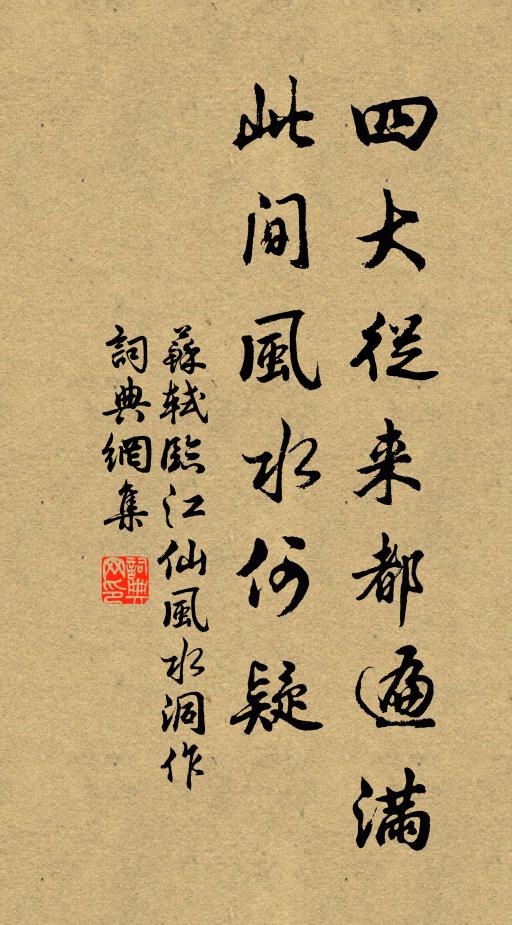 四大從来都遍満
此间風水何疑
蘇軾臨江仙風水洞作
詞典網集
詞典网印